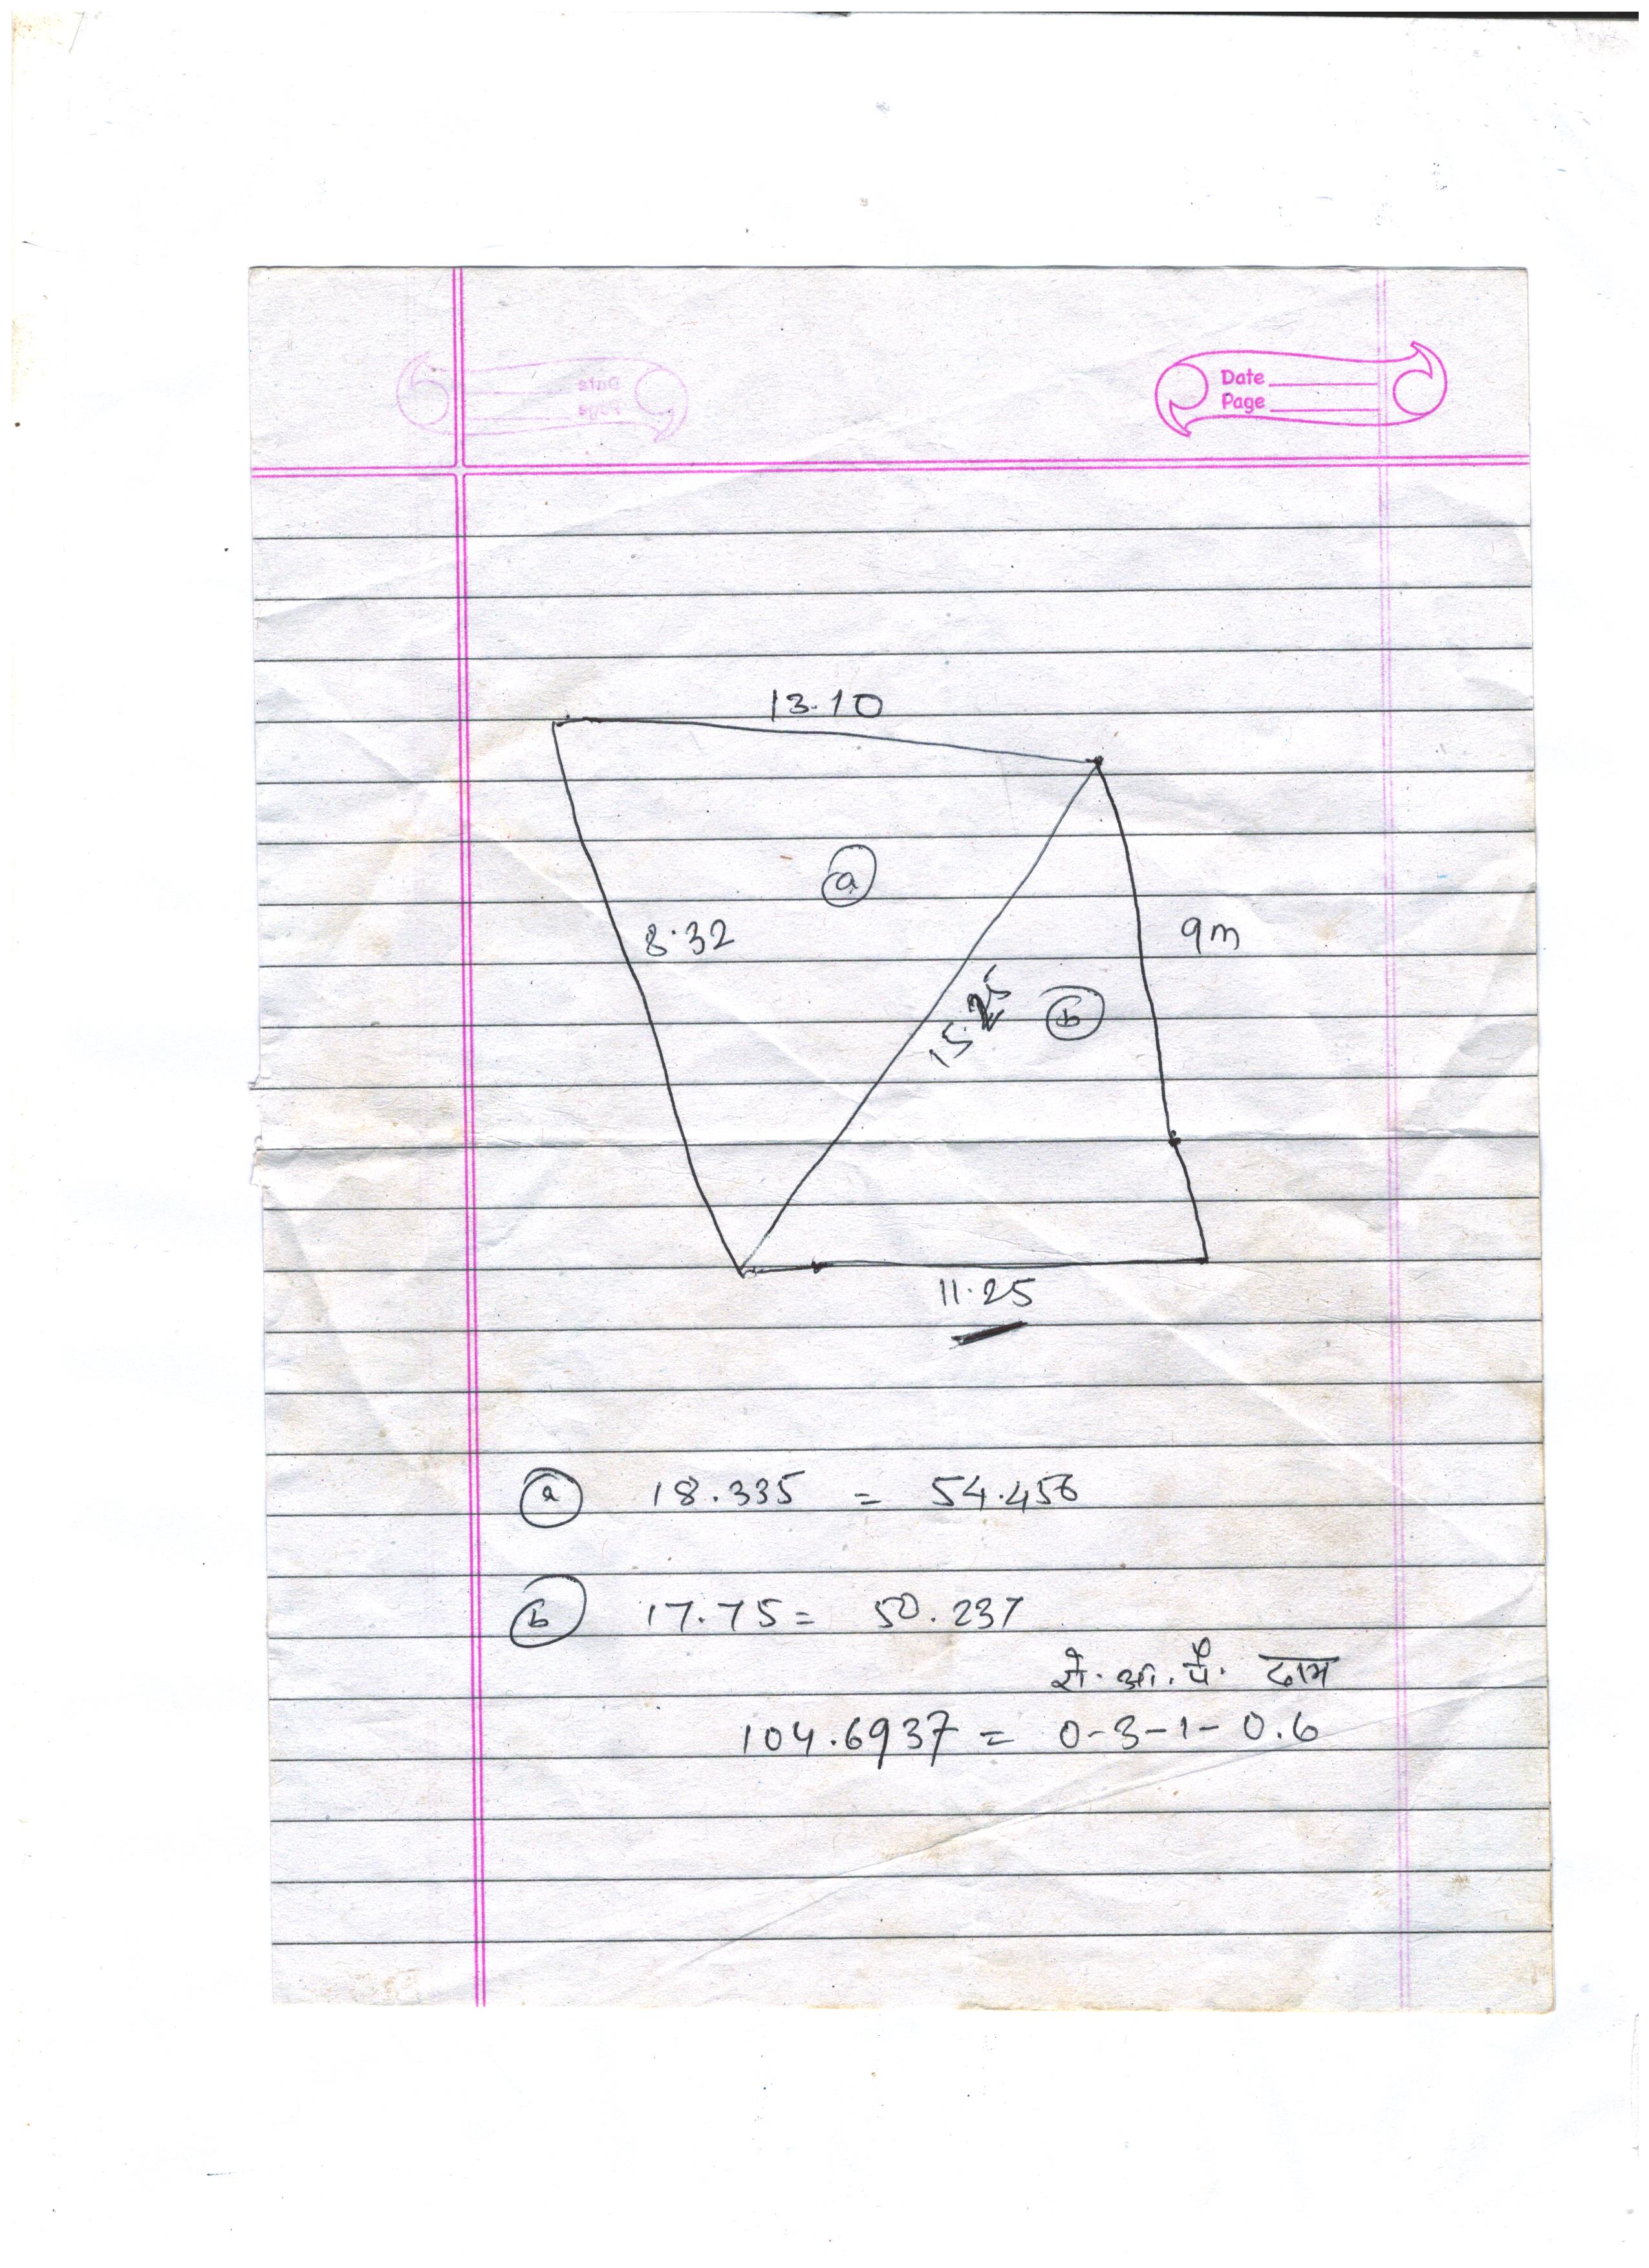 Date
Page
13.10
a
8.32
9m
15.25
b
11.25
a 18.335 = 54.456
b 17.75 = 50.237
रो. आ. पै. दाम
104.6937 = 0-3-1-0.6